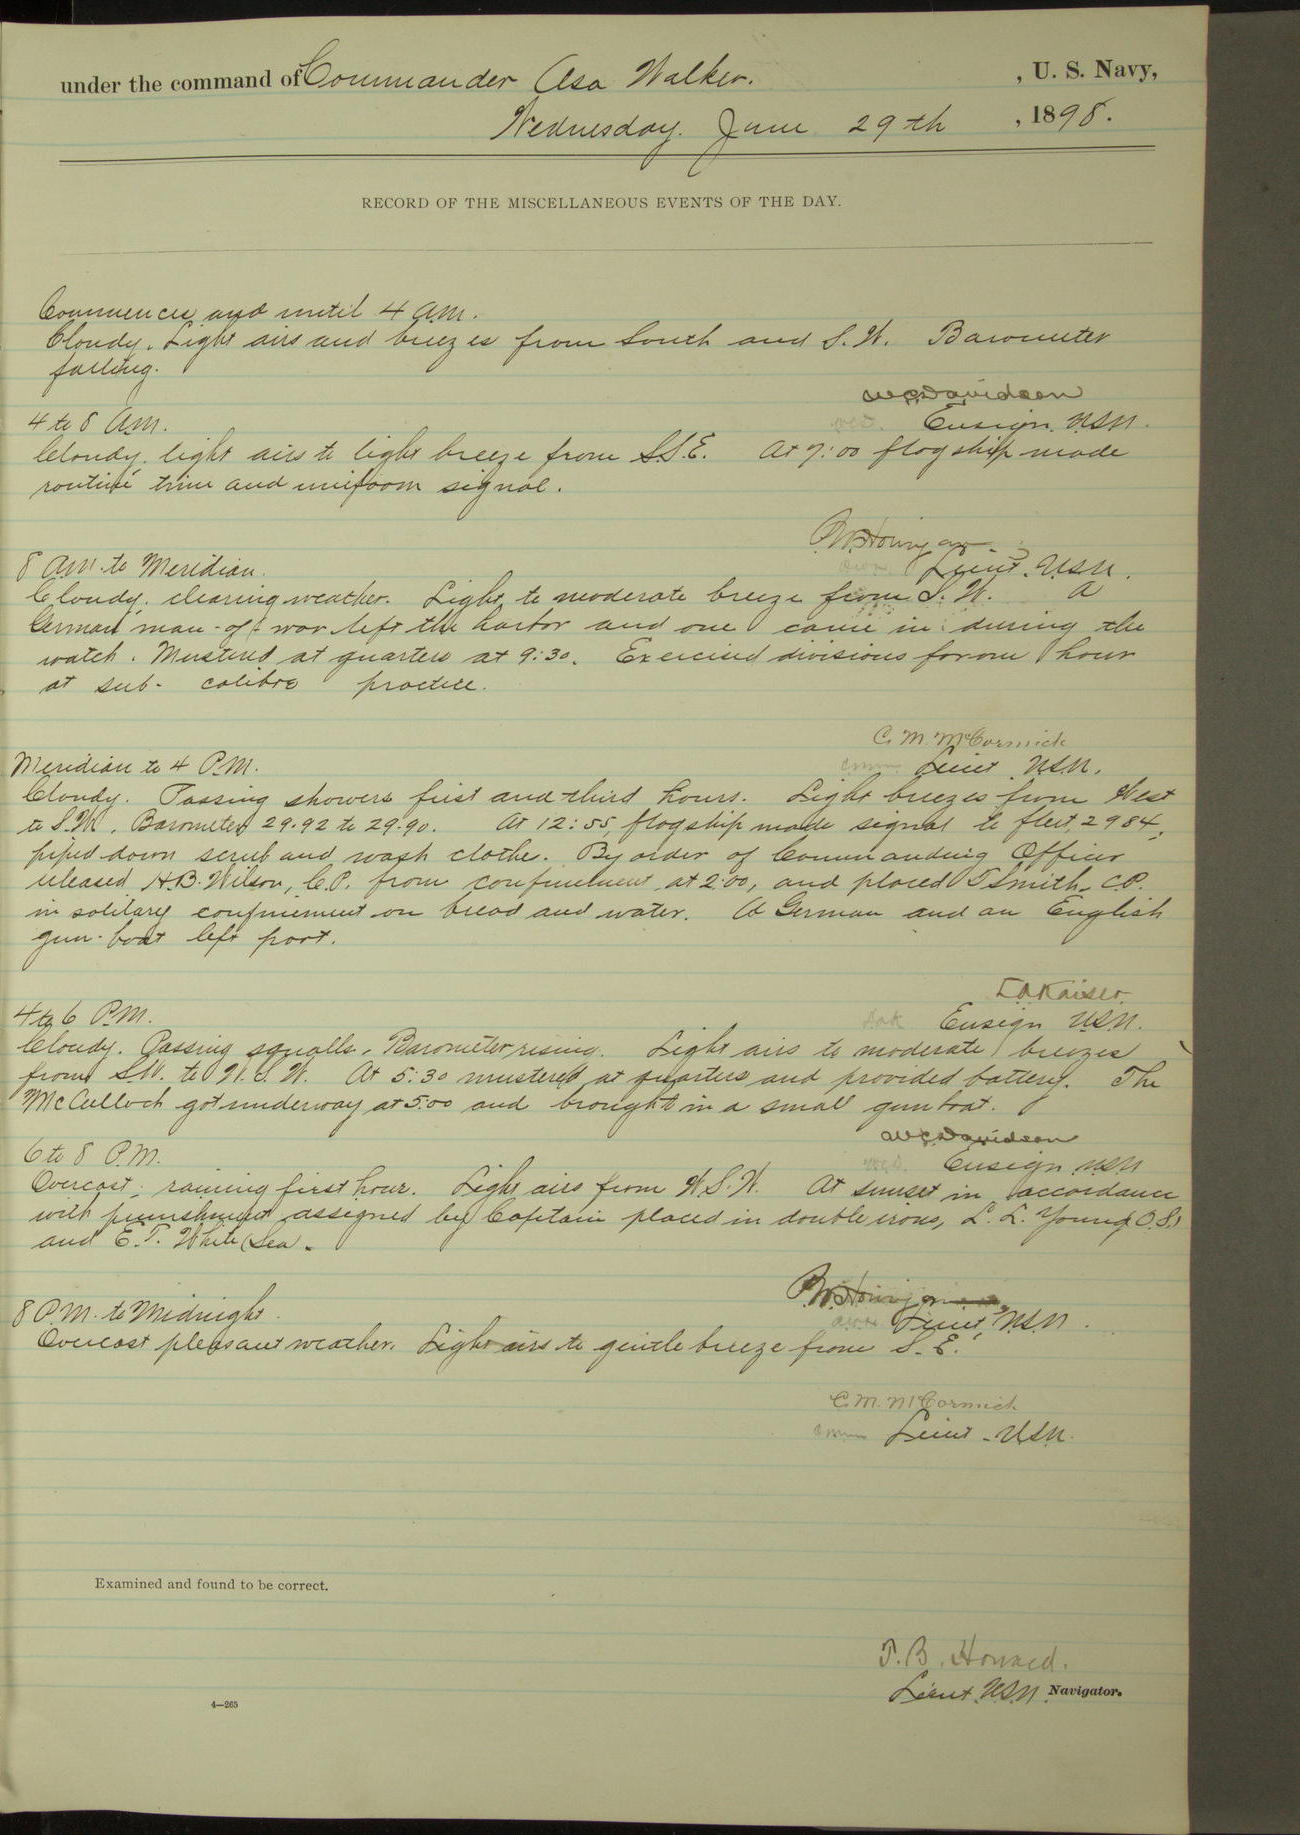 under the command of Commander Asa Walker. , U. S. Navy,
Wednesday. June 29th , 1898.
RECORD OF THE MISCELLANEOUS EVENTS OF THE DAY.
Commences and until 4 A.M.
Cloudy. Light airs and breezes from South and S.W. Barometer
falling.
W C Davidson
Ensign. U.S.N.
4 to 8 A.M.
Cloudy. light airs to light breeze from S.S.E. At 7:00 flagship made
routine trim and uniform signal.
Lieut. U.S.N.
8 AM. to Meridian.
Cloudy. clearing weather. Light to moderate breeze from S.W. A
German man-of-war left the harbor and one came in during the
watch. Mustered at quarters at 9:30. Exercised divisions for one hour
at sub-calibre practice.
C. M. McCormick
Lieut U.S.N.
Meridian to 4 P.M.
Cloudy. Passing showers first and third hours. Light breezes from West
to S.W. Barometer 29.92 to 29.90. At 12:55, flagship made signal to fleet, 2984,
piped down scrub and wash clothe. By order of Commanding Officer
released H.B. Wilson, C.P. from confinement at 2:00, and placed T Smith, C.P.
in solitary confinement on bread and water. A German and an English
gun-boat left port.
L A Kaiser.
Ensign U.S.N.
4 to 6 P.M.
Cloudy. Passing squalls. Barometer rising. Light airs to moderate breezes
from S.W. to W.S.W. At 5:30 mustered at quarters and provided battery. The
McCulloch got underway at 5:00 and brought in a small gunboat.
W C Davidson
Ensign U.S.N
6 to 8 P.M.
Overcast; raining first hour. Light airs from W.S.W. At sunset in accordance
with punishment assigned by Captain placed in double irons, L. L. Young O.S.
and E. T. White (Sea.
Lieut, U.S.N.
8 P.M. to Midnight.
Overcast pleasant weather. Light airs to gentle breeze from S.E.
C. M. McCormick
Lieut. U.S.N.
Examined and found to be correct.
T. B. Howard.
Lieut. U.S.N. Navigator.
4—265